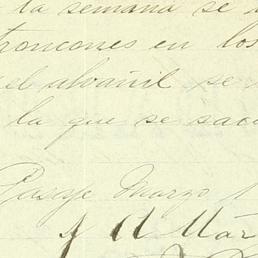 la semana se
troncones en los
el alvañil se
la que se sacó
Pasaje Marzo 1
J A Mar